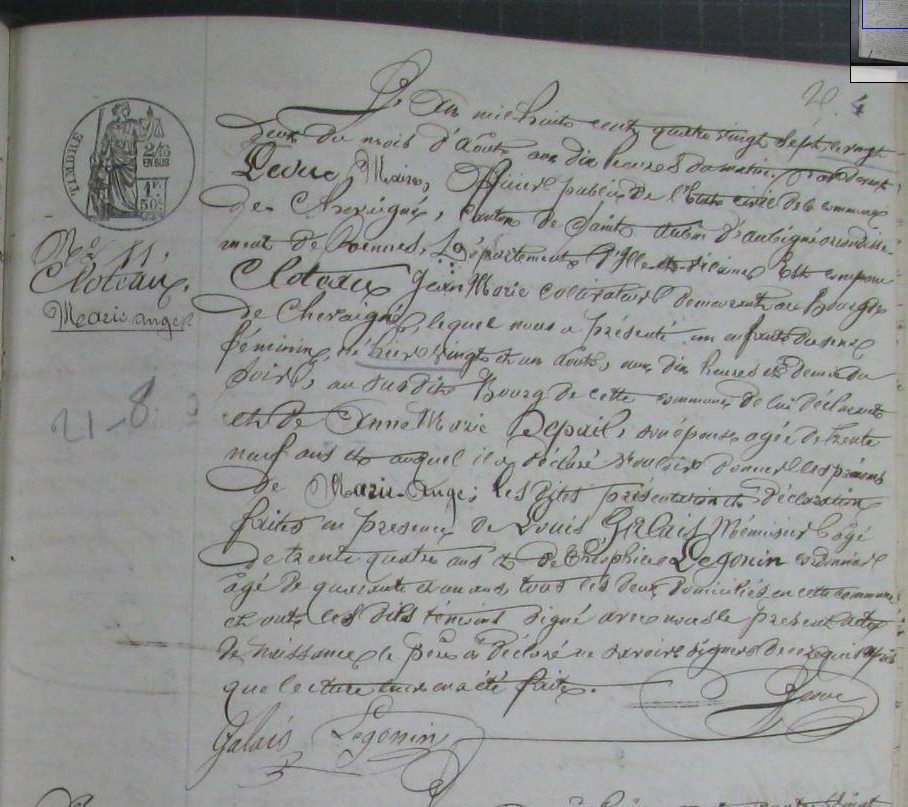 L'An mil huit cent quatre vingt sept, le vingt
deux du mois d'août aux dix heures du matin, par devant
Leduc, Maire, Officier public de l'Etat civil de la commune
de Chevaigné, canton de Saint Aubin d'aubigné arrondisse
ment de Rennes, Département d'Ille-et-vilaine Est comparu
TIMBRE
2/10
EN SUS
1F
50C
No 11
Cloteau.
Marie ange
21-8.
Cloteau Jean Marie cultivateur demeurant au Bourg de
de Chevaigné, lequel nous a présenté un enfant du sexe
féminin, né hier vingt et un août, aux dix heures et demie du
soir, au susdit Bourg de cette commune de lui déclarant
et de Anne Marie Depail, son épouse agée de trente
neuf ans et auquel il a déclaré vouloir donner les prénoms
de Marie-Ange; les dites présentation et déclaration
faites en presence de Louis Galais Menuisier âgé
de trente quatre ans et de Théophile Legonin cordonnier
âgé de quarante et un ans, tous les deux domiciliés en cette commune
et ont les dits témoins signé avec nous le présent acte
de naissance, le père a déclaré ne savoir signer de ce requis après
que lecture leur en a été faite.
Galais Legonin